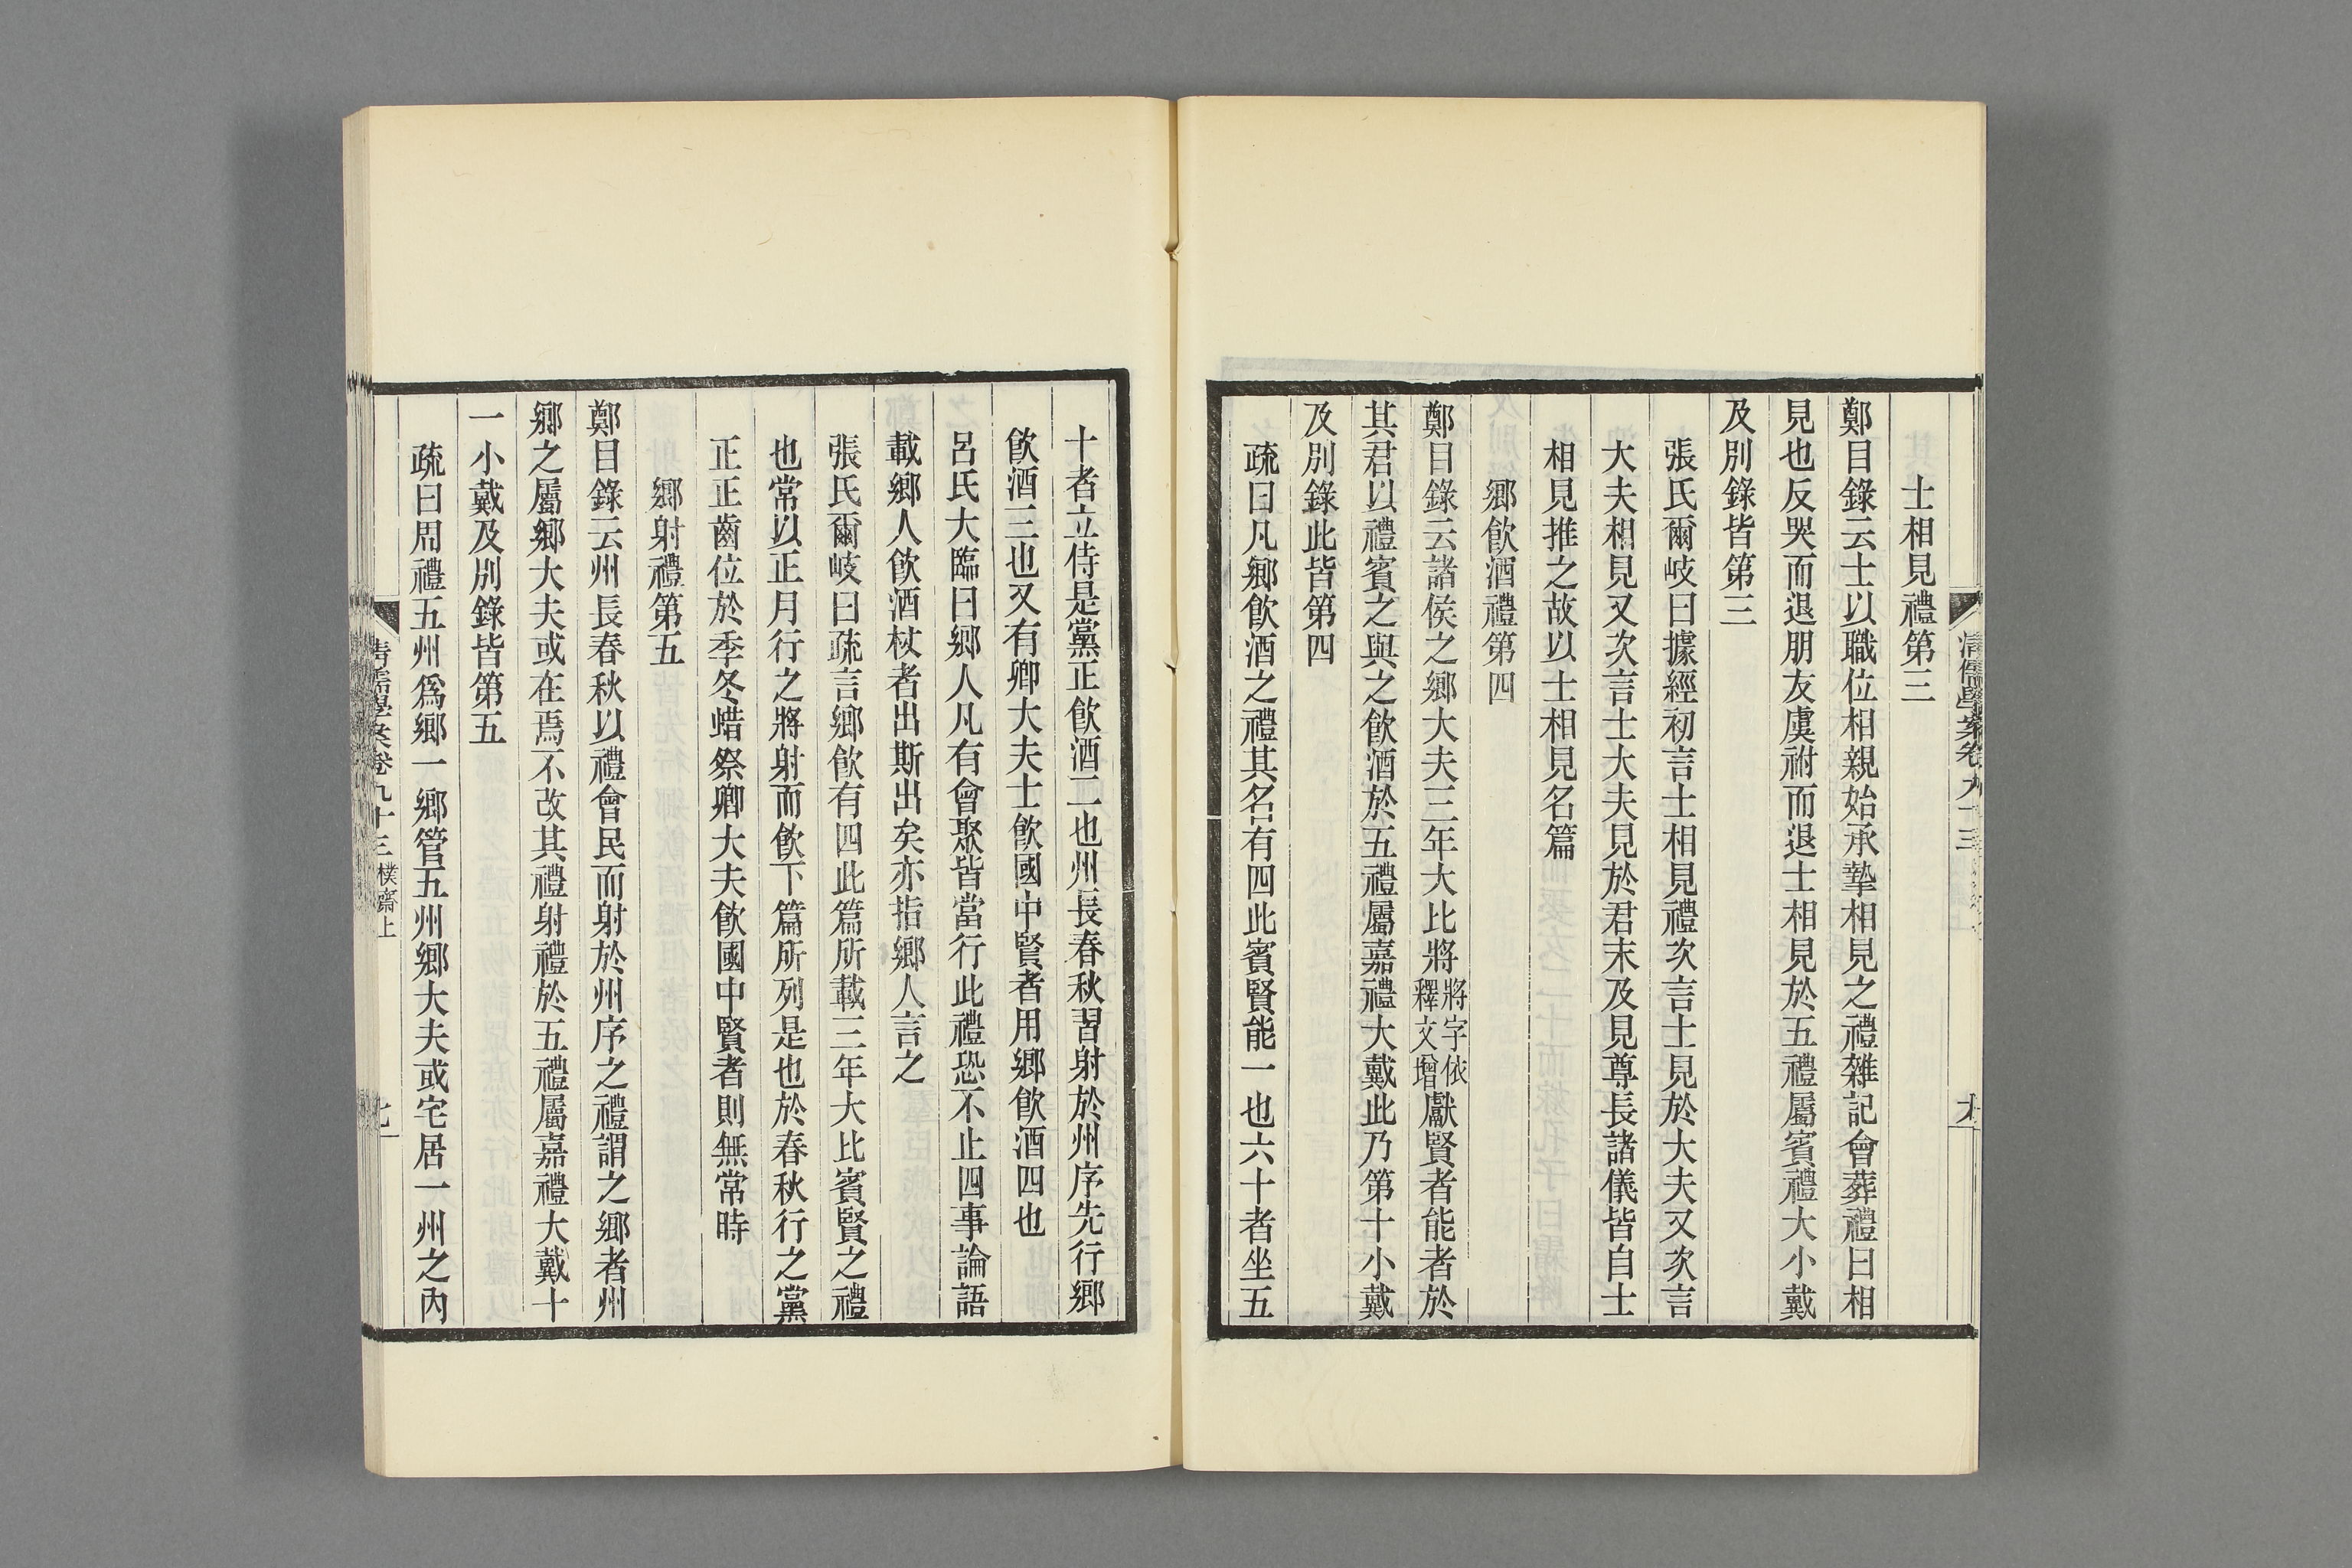 士相見禮第三
鄭目錄云士以職位相親始承摯相見之禮雜記會葬禮曰相
見也反哭而退朋友虞祔而退士相見於五禮屬賓禮大小戴
及別錄皆第三
張氏爾岐曰據經初言士相見禮次言士見於大夫又次言
大夫相見又次言士大夫見於君末及見尊長諸儀皆自士
相見推之故以士相見名篇
鄉飲酒禮第四
鄭目錄云諸侯之鄉大夫三年大比將將字依釋文增獻賢者能者於
其君以禮賓之與之飲酒於五禮屬嘉禮大戴此乃第十小戴
及別錄此皆第四
疏曰凡鄉飲酒之禮其名有四此賓賢能一也六十者坐五
十者立侍是黨正飲酒二也州長春秋習射於州序先行鄉
飲酒三也又有卿大夫士飲國中賢者用鄉飲酒四也
呂氏大臨曰鄉人凡有會聚皆當行此禮恐不止四事論語
載鄉人飲酒杖者出斯出矣亦指鄉人言之
張氏爾岐曰疏言鄉飲有四此篇所載三年大比賓賢之禮
也常以正月行之將射而飲下篇所列是也於春秋行之黨
正正齒位於季冬蜡祭卿大夫飲國中賢者則無常時
鄉射禮第五
鄭目錄云州長春秋以禮會民而射於州序之禮謂之鄉者州
鄉之屬鄉大夫或在焉不改其禮射禮於五禮屬嘉禮大戴十
一小戴及別錄皆第五
疏曰周禮五州爲鄉一鄉管五州鄉大夫或宅居一州之內
清儒學案卷九十三 樸齋上